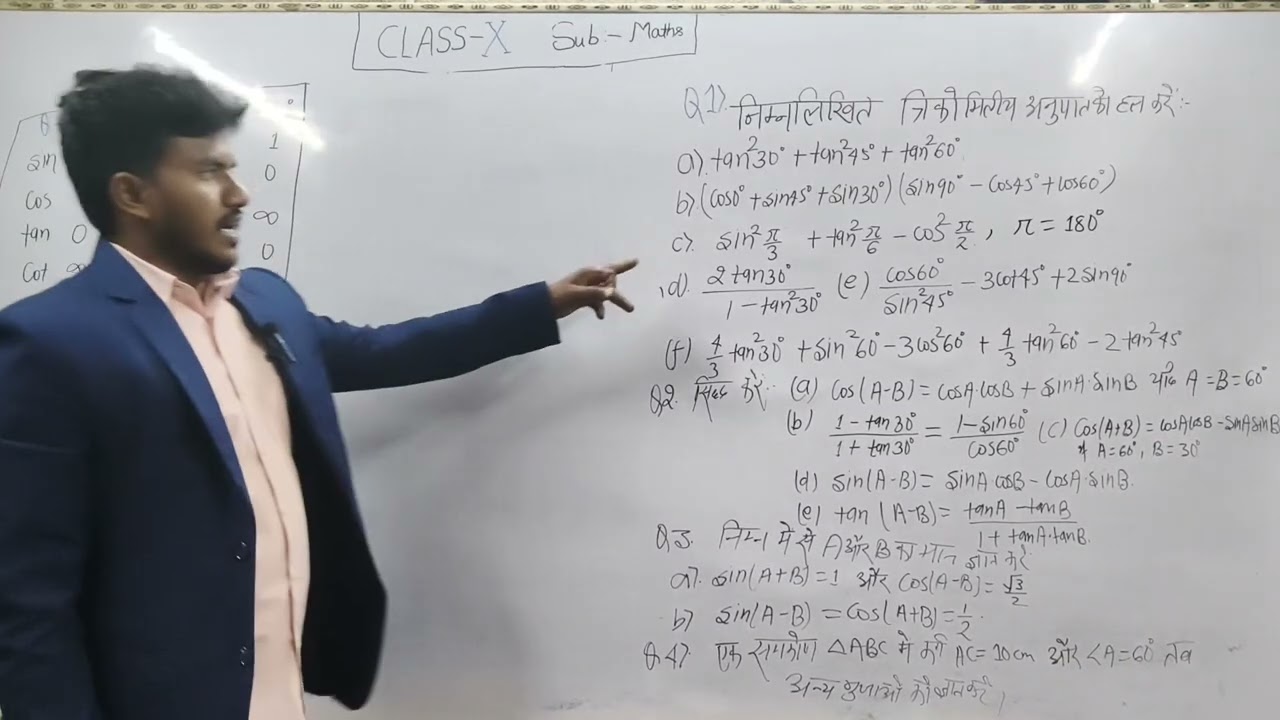 CLASS-X Sub:- Maths
θ
sin 1
cos 0
tan 0 ∞
cot ∞ 0
Q1). निम्नलिखित त्रिकोमितीय अनुपात को हल करें:-
a). tan²30° + tan²45° + tan²60°
b). (cos0° + sin45° + sin30°) (sin90° - cos45° + cos60°)
c). sin² π/3 + tan² π/6 - cos² π/2, π = 180°
d). 2tan30° / 1 - tan²30° (e) cos60° / sin²45° - 3cot45° + 2sin90°
(f) 4/3 tan²30° + sin²60° - 3cos²60° + 4/3 tan²60° - 2tan²45°
Q2. सिद्ध करें:- (a) cos(A-B) = cosA·cosB + sinA·sinB यदि A = B = 60°
(b) 1 - tan30° / 1 + tan30° = 1 - sin60° / cos60° (c) cos(A+B) = cosAcosB - sinAsinB
A = 60°, B = 30°
(d) sin(A-B) = sinA·cosB - cosA·sinB.
(e) tan (A-B) = tanA - tanB / 1 + tanA·tanB.
Q3. निम्न में से A और B का मान ज्ञात करें
a). sin(A+B) = 1 और cos(A-B) = √3/2
b). sin(A-B) = cos(A+B) = 1/2.
Q.4). एक समकोण △ABC में AC = 10cm और <A = 60° तब
अन्य भुजाओं को ज्ञात करें।